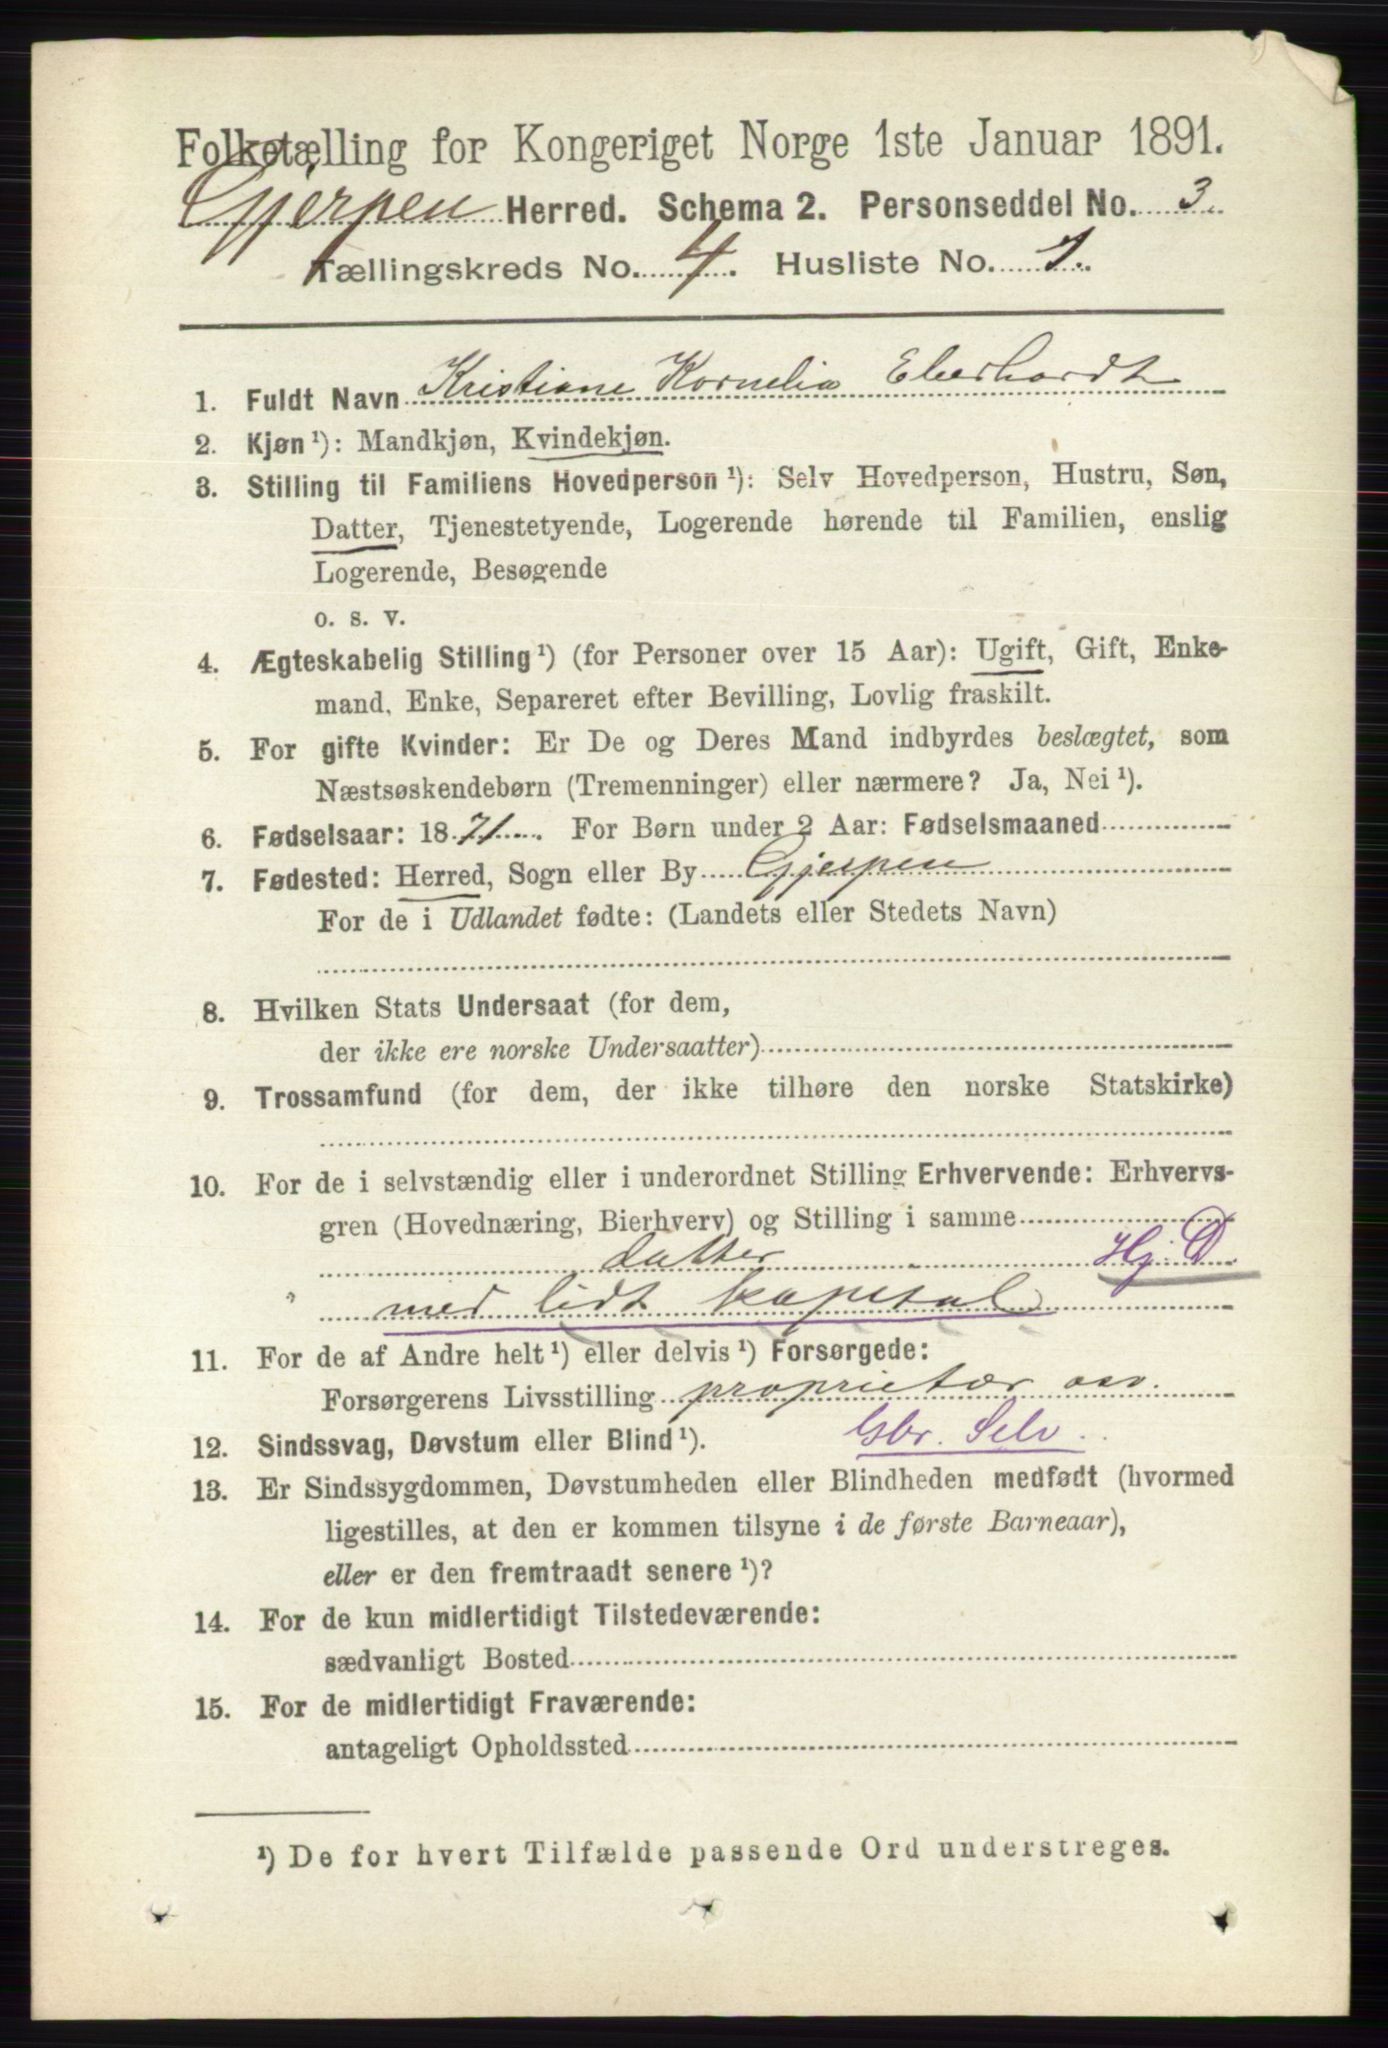 Folketælling for Kongeriget Norge 1ste Januar 1891.
Gjerpen Herred. Schema 2. Personseddel No. 3.
Tællingskreds No. 4. Husliste No. 1.
1. Fuldt Navn Kristiane Kornelia Eberhardt
2. Kjøn ¹): Mandkjøn, Kvindekjøn.
3. Stilling til Familiens Hovedperson ¹): Selv Hovedperson, Hustru, Søn,
Datter, Tjenestetyende, Logerende hørende til Familien, enslig
Logerende, Besøgende
o. s. v.
4. Ægteskabelig Stilling ¹) (for Personer over 15 Aar): Ugift, Gift, Enke-
mand, Enke, Separeret efter Bevilling, Lovlig fraskilt.
5. For gifte Kvinder: Er De og Deres Mand indbyrdes beslægtet, som
Næstsøskendebørn (Tremenninger) eller nærmere? Ja, Nei ¹).
6. Fødselsaar: 1871. For Børn under 2 Aar: Fødselsmaaned
7. Fødested: Herred, Sogn eller By Gjerpen
For de i Udlandet fødte: (Landets eller Stedets Navn)
8. Hvilken Stats Undersaat (for dem,
der ikke ere norske Undersaatter)
9. Trossamfund (for dem, der ikke tilhøre den norske Statskirke)
10. For de i selvstændig eller i underordnet Stilling Erhvervende: Erhvervs-
gren (Hovednæring, Bierhverv) og Stilling i samme
datter Hj. D.
med lidt kapital
11. For de af Andre helt ¹) eller delvis ¹) Forsørgede:
Forsørgerens Livsstilling proprietær osv.
12. Sindssvag, Døvstum eller Blind ¹). Gbr. Selv.
13. Er Sindssygdommen, Døvstumheden eller Blindheden medfødt (hvormed
ligestilles, at den er kommen tilsyne i de første Barneaar),
eller er den fremtraadt senere ¹)?
14. For de kun midlertidigt Tilstedeværende:
sædvanligt Bosted
15. For de midlertidigt Fraværende:
antageligt Opholdssted
¹) De for hvert Tilfælde passende Ord understreges.